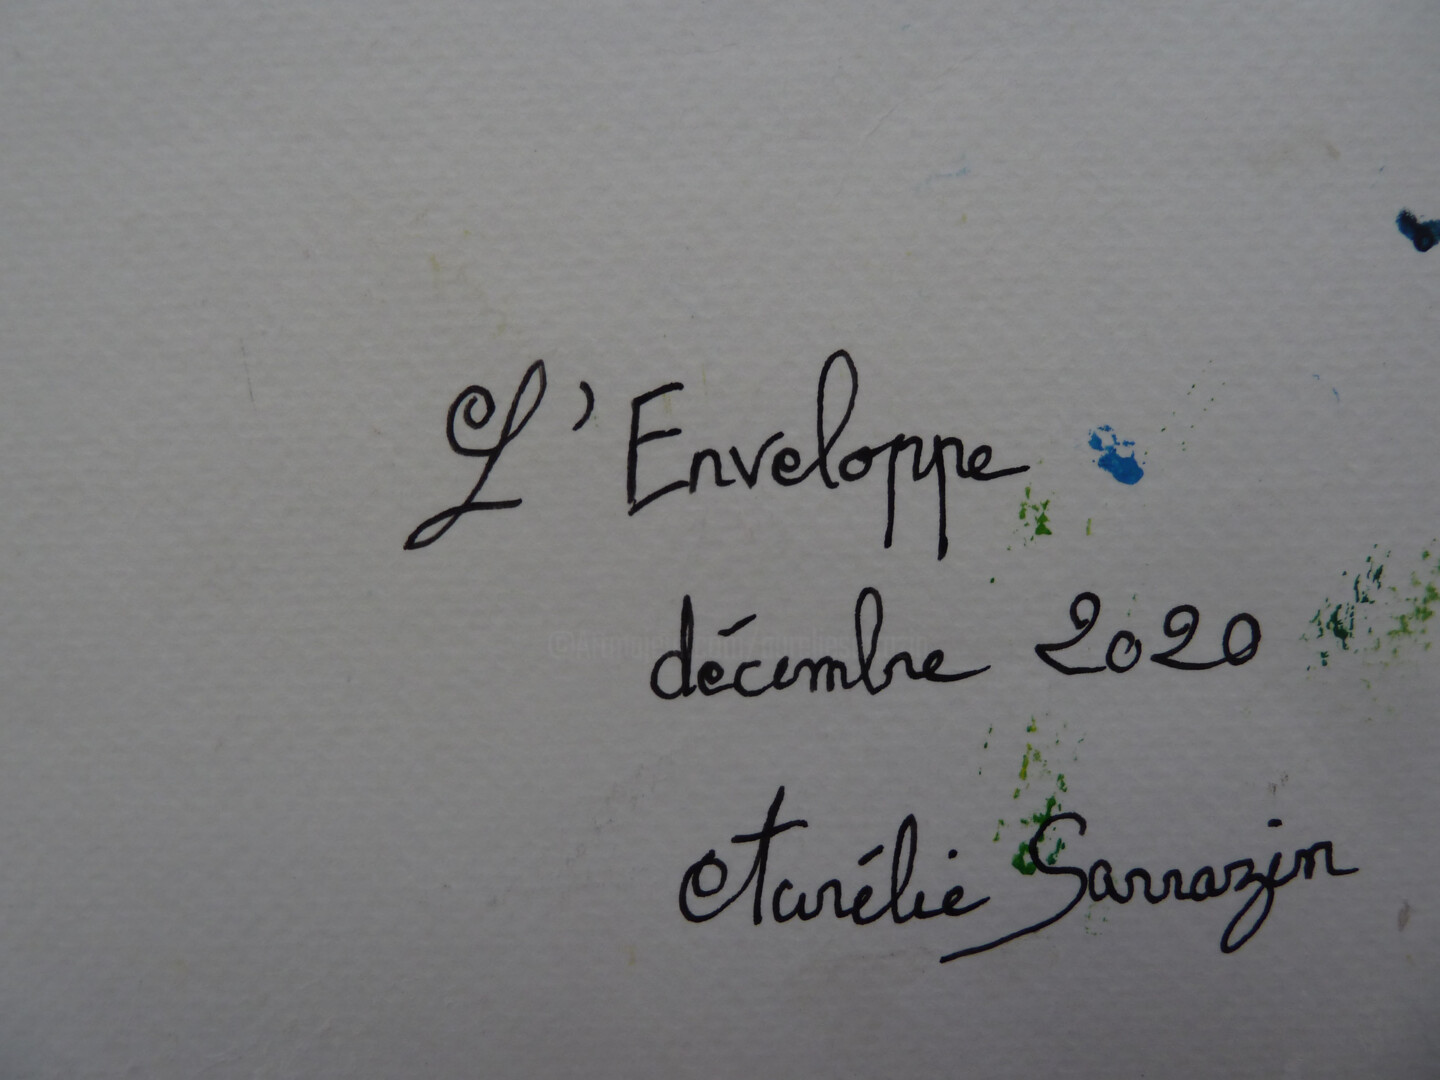 L'Enveloppe
décembre 2020
Aurélie Sarrazin